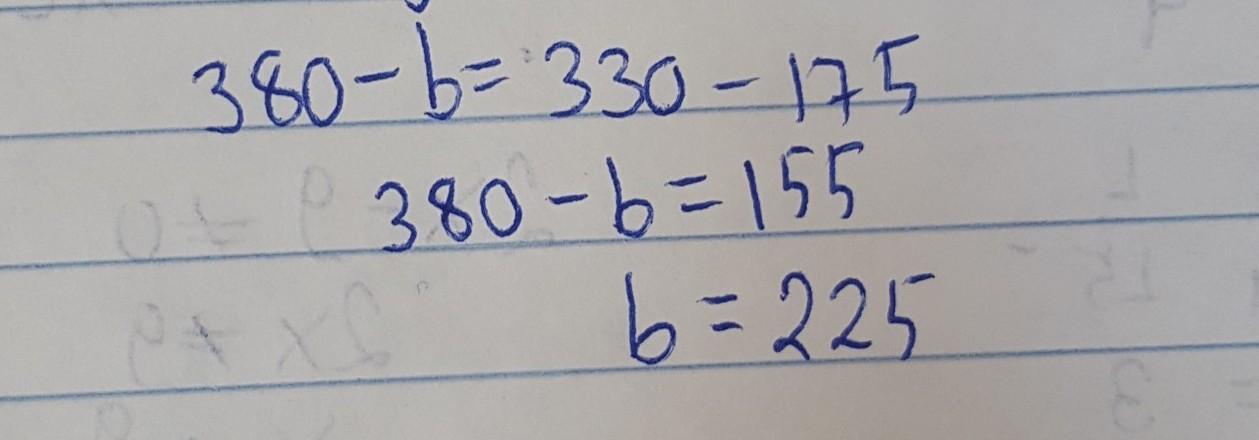 380 - b = 330 - 175
380 - b = 155
b = 225